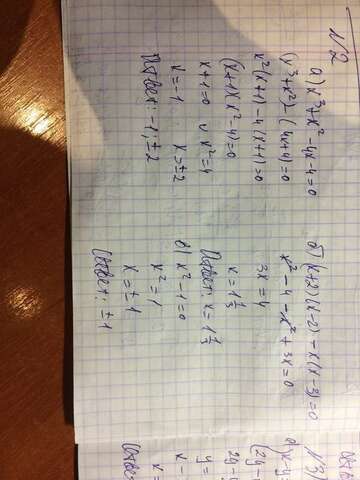 №2
а) x³+x²-4x-4=0
(x³+x²)-(4x+4)=0
x²(x+1)-4(x+1)=0
(x+1)(x²-4)=0
x+1=0 и x²=4
x=-1 x=±2
Ответ: -1; ±2
б) (x+2)(x-2)-x(x-3)=0
x²-4-x²+3x=0
3x=4
x=1 1/3
Ответ: x=1 1/3
в) x²-1=0
x²=1
x=±1
Ответ: ±1
№3